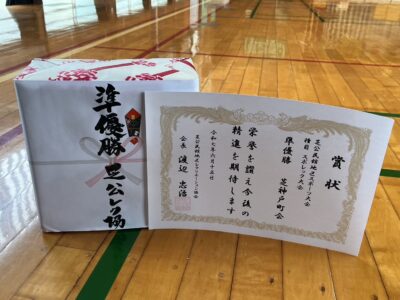 準優勝 芝公レク協
賞状
芝公民館地区スポーツ大会
種目 スポレック大会
準優勝 芝神戸町会
栄誉を讃え今後の
精進を期待します
令和七年六月十五日
芝公民館地区レクリエーション協会
会長 渡辺 忠治